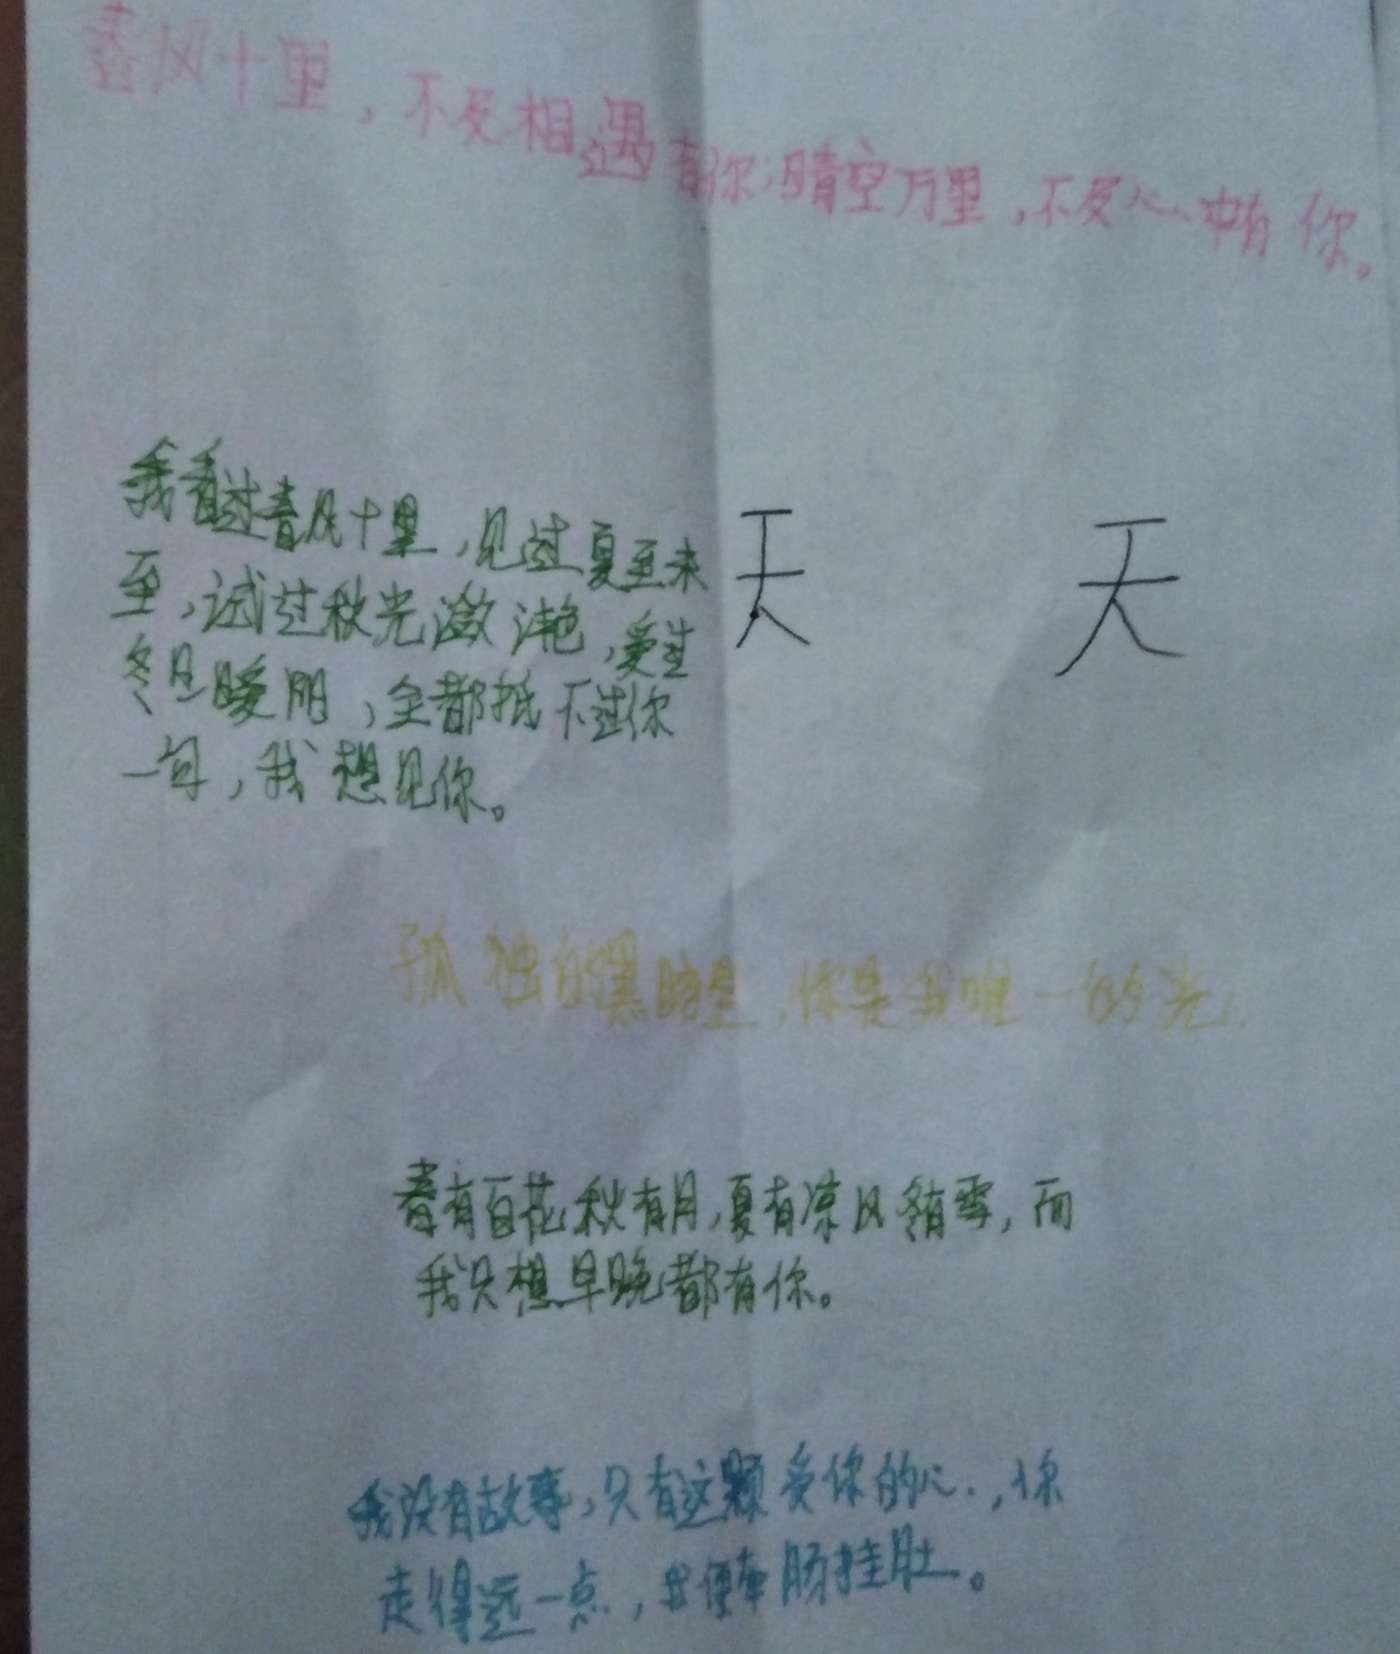 春风十里，不及相遇有你；晴空万里，不及心中有你。
我看过春风十里，见过夏至未
至，试过秋光潋滟，爱过
冬日暖阳，全都抵不过你
一句，我想见你。
天 天
孤独的黑暗里，你是我唯一的光。
春有百花秋有月，夏有凉风冬有雪，而
我只想早晚都有你。
我没有故事，只有这颗爱你的心，你
走得远一点，我便牵肠挂肚。